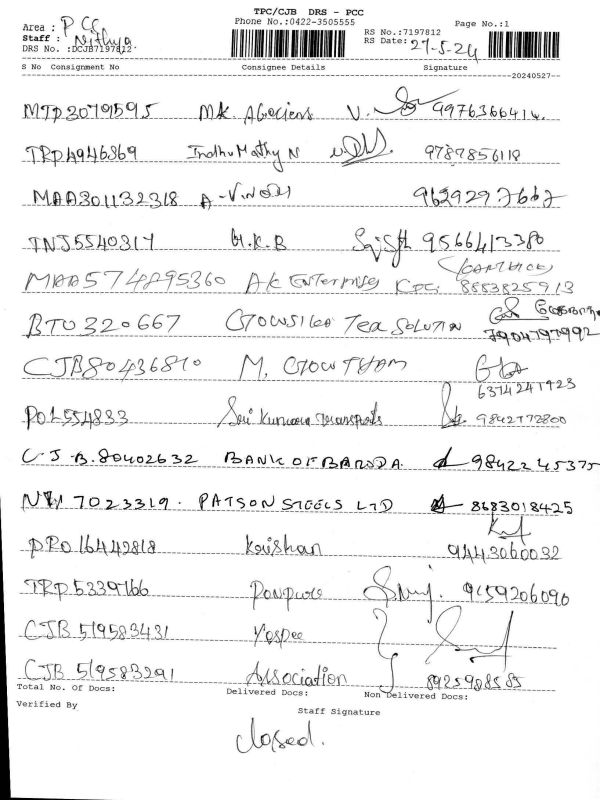 TPC/CJB DRS - PCC
Area : PCC Phone No.:0422-3505555 Page No.:1
Staff : Nithya RS No.:7197812
DRS No. :DCJB7197812 RS Date: 27-5-24
S No Consignment No Consignee Details Signature
--20240527--
MTP30791595 M.K. 9976366414
TRP4946369 Indhu Mathy N 9787856118
MAA301132318 A-VINOTH 9629297667
TNJ5540317 G.K.B 9566413380
MAA574895360 AK Enterprises 8883825913
BTU320667 GOWSIKA Tea SOLUTION 7904797992
CJB80436810 M. GOWTHAM 6374241923
POL554833 Sri Kumaran Transports 9842772800
CJB.80402632 BANK OF BARODA. 9842245375
7023319. PATSON STEELS LTD 8683018425
PRO16442818 Krishan 9443060032
TRP5339166 Ponpure 9159206090
CJB 519583431 Yespee
CJB 519583291 Association 8925988585
Total No. Of Docs: Delivered Docs: Non Delivered Docs:
Verified By Staff Signature
closed.